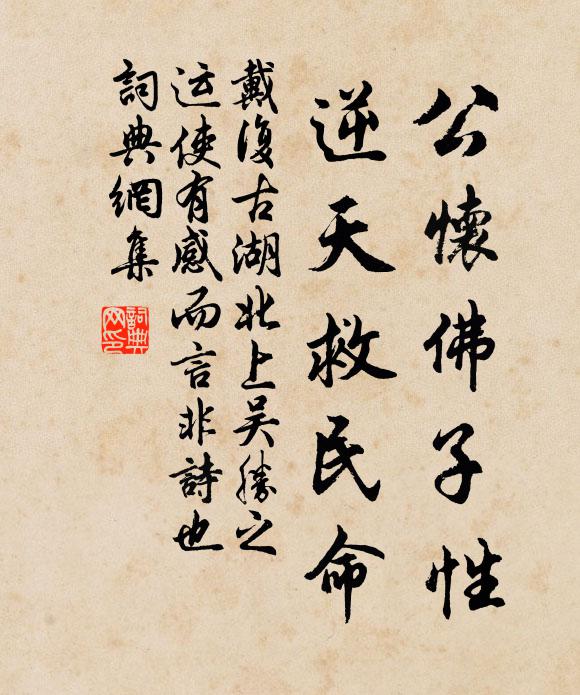 公懷佛子性
逆天救民命
戴復古湖北上吴勝之
运使有感而言非詩也
詞典網集
詞典
网印